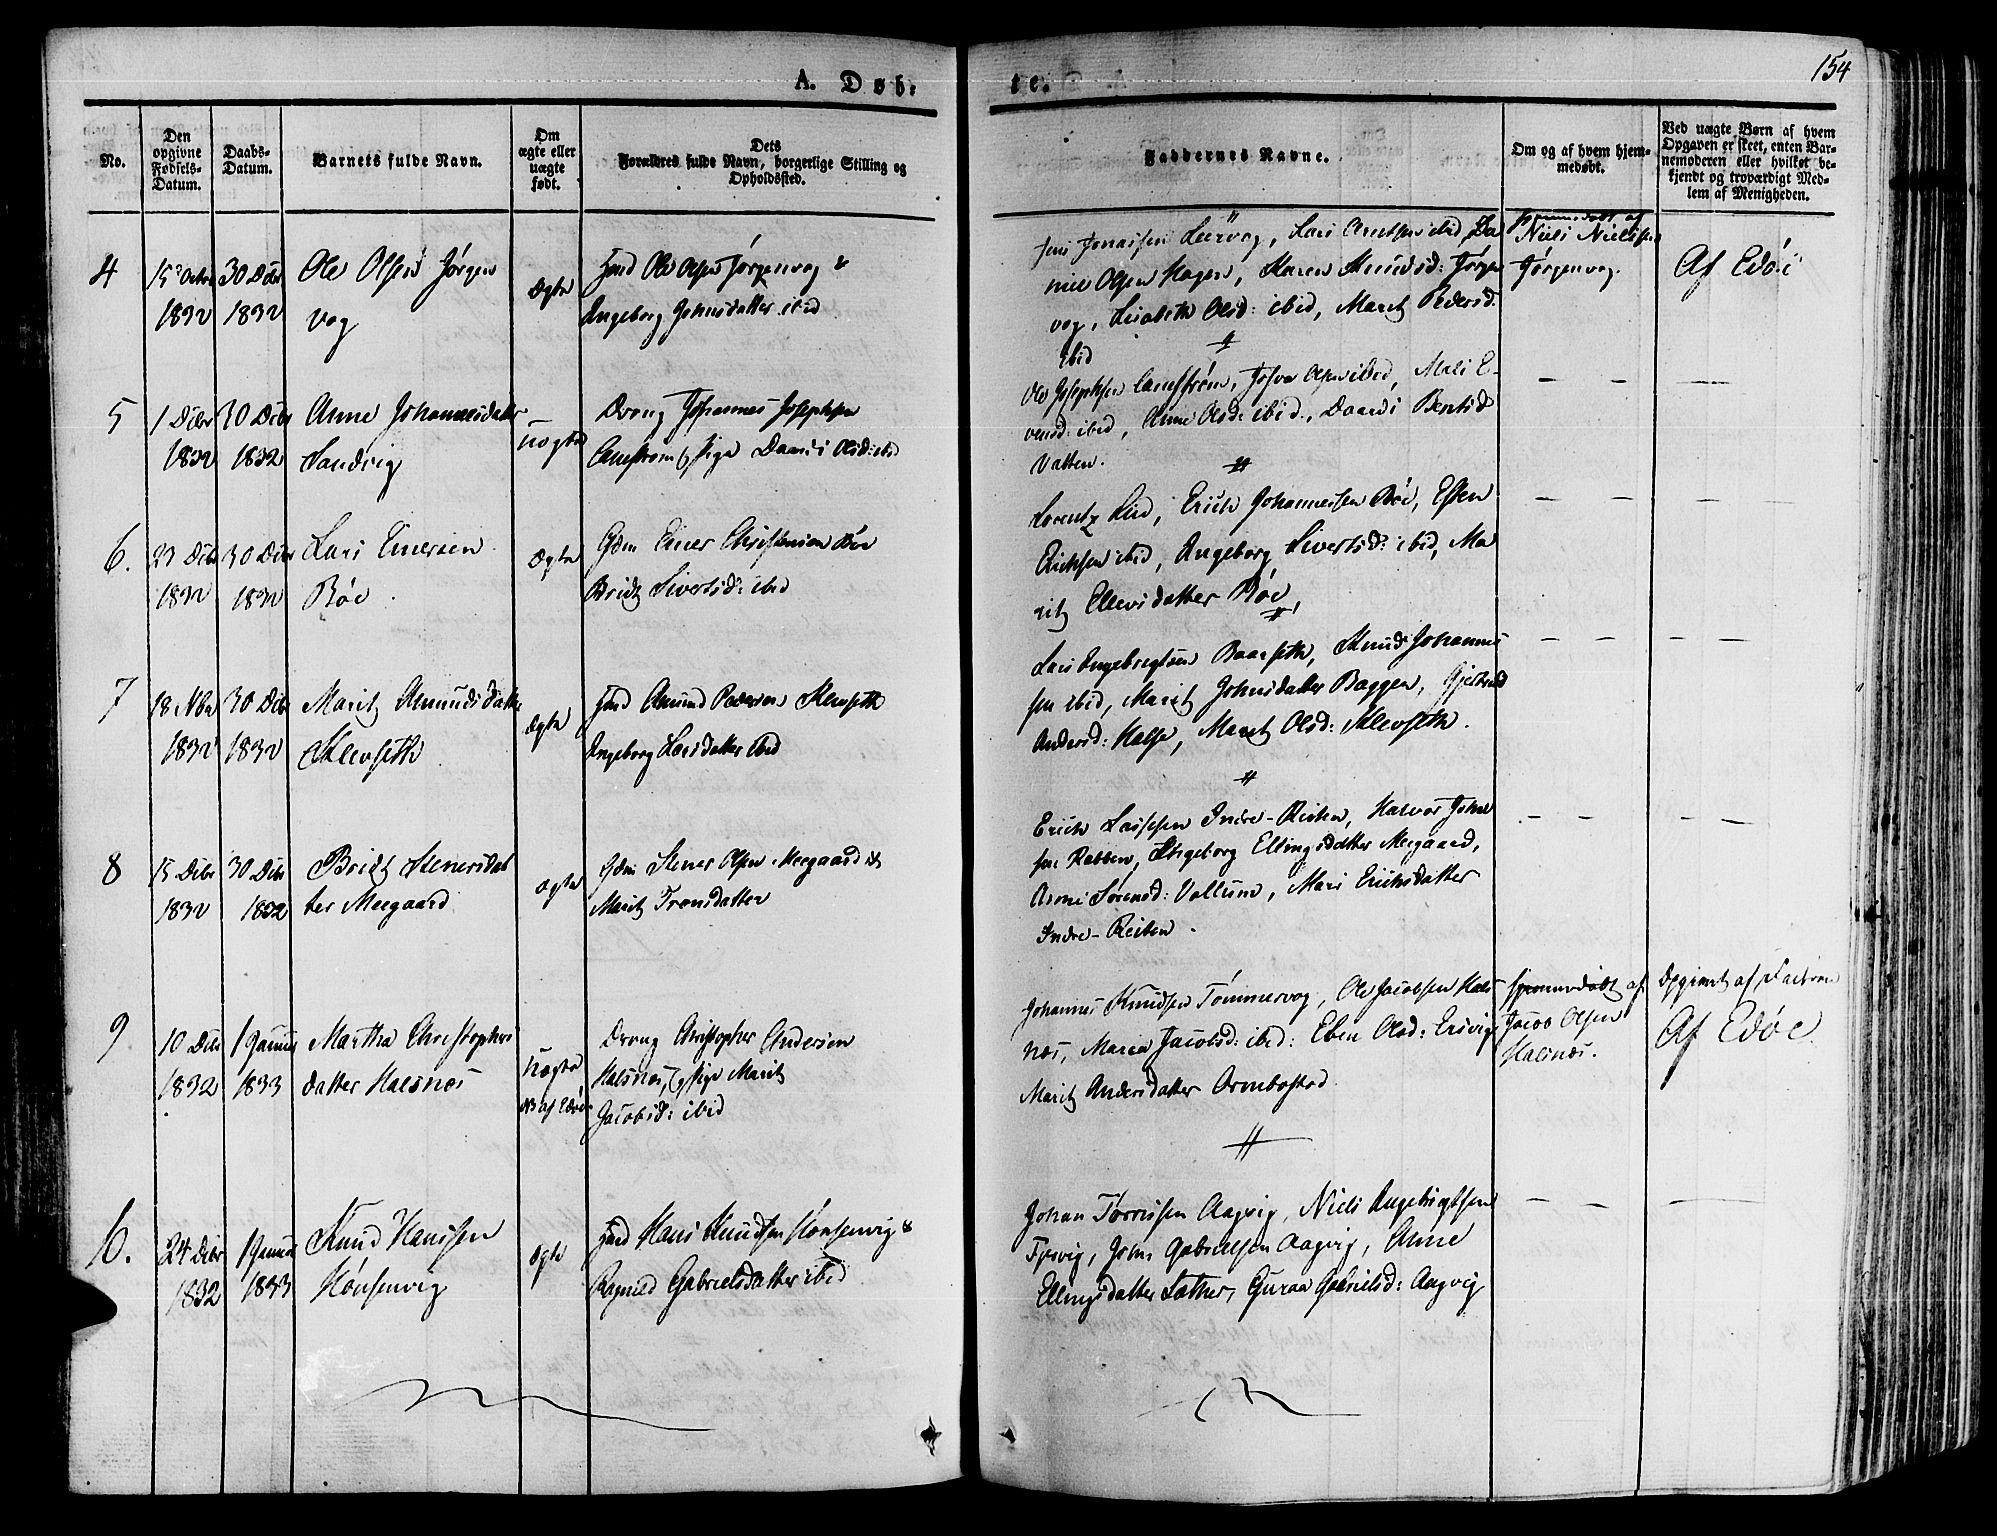 154
A. Døb-
te.
No.
Den opgivne Fødsels-Datum.
Daabs-Datum.
Barnets fulde Navn.
Om ægte eller uægte født.
Dets Forældres fulde Navn, borgerlige Stilling og Opholdssted.
Faddernes Navne.
Om og af hvem hjemmedøbt.
Ved uægte Børn af hvem Opgaven er skeet, enten Barnemoderen eller hvilket bekjendt og troværdigt Medlem af Menigheden.
4
15 Octr 30 Dcbr Ole Olsen Jørgen
1832 1832 vog
Ægte
Ole Olsen Jørgenvog &
Ingeborg Johnsdatter ibid
Jonassen Leervog, Lars Arntsen ibid, Da
niel Olsen Hagen, Karen Knudsd: Jørgen
vog, Lisabeth Olsd: ibid, Marit Pedersd:
ibid
hjemmedøbt af
Niels Nielsen
Jørgenvog.
Af Edøe
5
1 Dcbr 30 Dcbr Anne Johannesdatter
1832 1832 Sandvig
Uægte
Dreng Johannes Josephsen
og Pige Daardi Olsd: ibid
Ole Josephsen, Olsen ibid, Mali E-
vensd: ibid, Anne Olsd: ibid, Daardi Berntsd
Vatten.
6.
23 Dcbr 30 Dcbr Lars Einersen
1832 1832 Bøe.
Ægte
Gdm Einer Christensen Bøe
Bridt Sivertsd: ibid
Lorentz, Erich Johannessen Bøe, Esten
Erichsen ibid, Ingeborg Sivertsd: ibid, Ma
rit Ellevsdatter Bøe,
7
18 Nbr 30 Dcbr Marit Amundsdatter
1832 1832 Klevseth
Ægte
Amund Pedersen Klevseth
Ingeborg Larsdatter ibid
Lars Ingebrigtsen Baarseth, Knud Johannes
sen ibid, Marit Johnsdatter Baggen, Gjertrud
Andersd: Halse, Marit Olsd: Klevseth.
8
15 Dcbr 30 Dcbr Bridt Stenersdat
1832 1832 ter Meegaard
ægte
Gdm Stener Olsen Meegaard &
Marit Tronsdatter
Erich Larssen Indre-Reiten, Halvor John
sen Rabben, Ingeborg Ellingsdatter Meegaard,
Anne Sørensd: Vullum, Mari Erichsdatter
Indre-Reiten.
9
10 Dcbr 1 Januar Martha Christophers
1832 1833 datter Halsnæs
Uægte
NB af Edøe
Dreng Christopher Andersen
Halsnæs, og Pige Marit
Jacobsd: ibid
Johannes Knudsen Tømmervog, Ole Jacobsen Hals
næs, Maren Jacobsd: ibid: Eben Olsd: Ervig
Marit Andersdatter Ormbostad
hjemmedøbt af
Jacob Olsen
Halsnæs.
Opgivet af
Af Edøe
10.
24 Dcbr 1 Januar Knud Hanssen
1832 1833 Hønsenvig
ægte
Hans Knudsen Hønsenvig &
Ragnild Gabrielsdatter ibid
Johan Tørrissen Aagvig, Niels Ingebrigtsen
John Gabrielsen Aagvig, Anne
Ellingsdatter Sæther, Guraa Gabrielsd: Aagvig